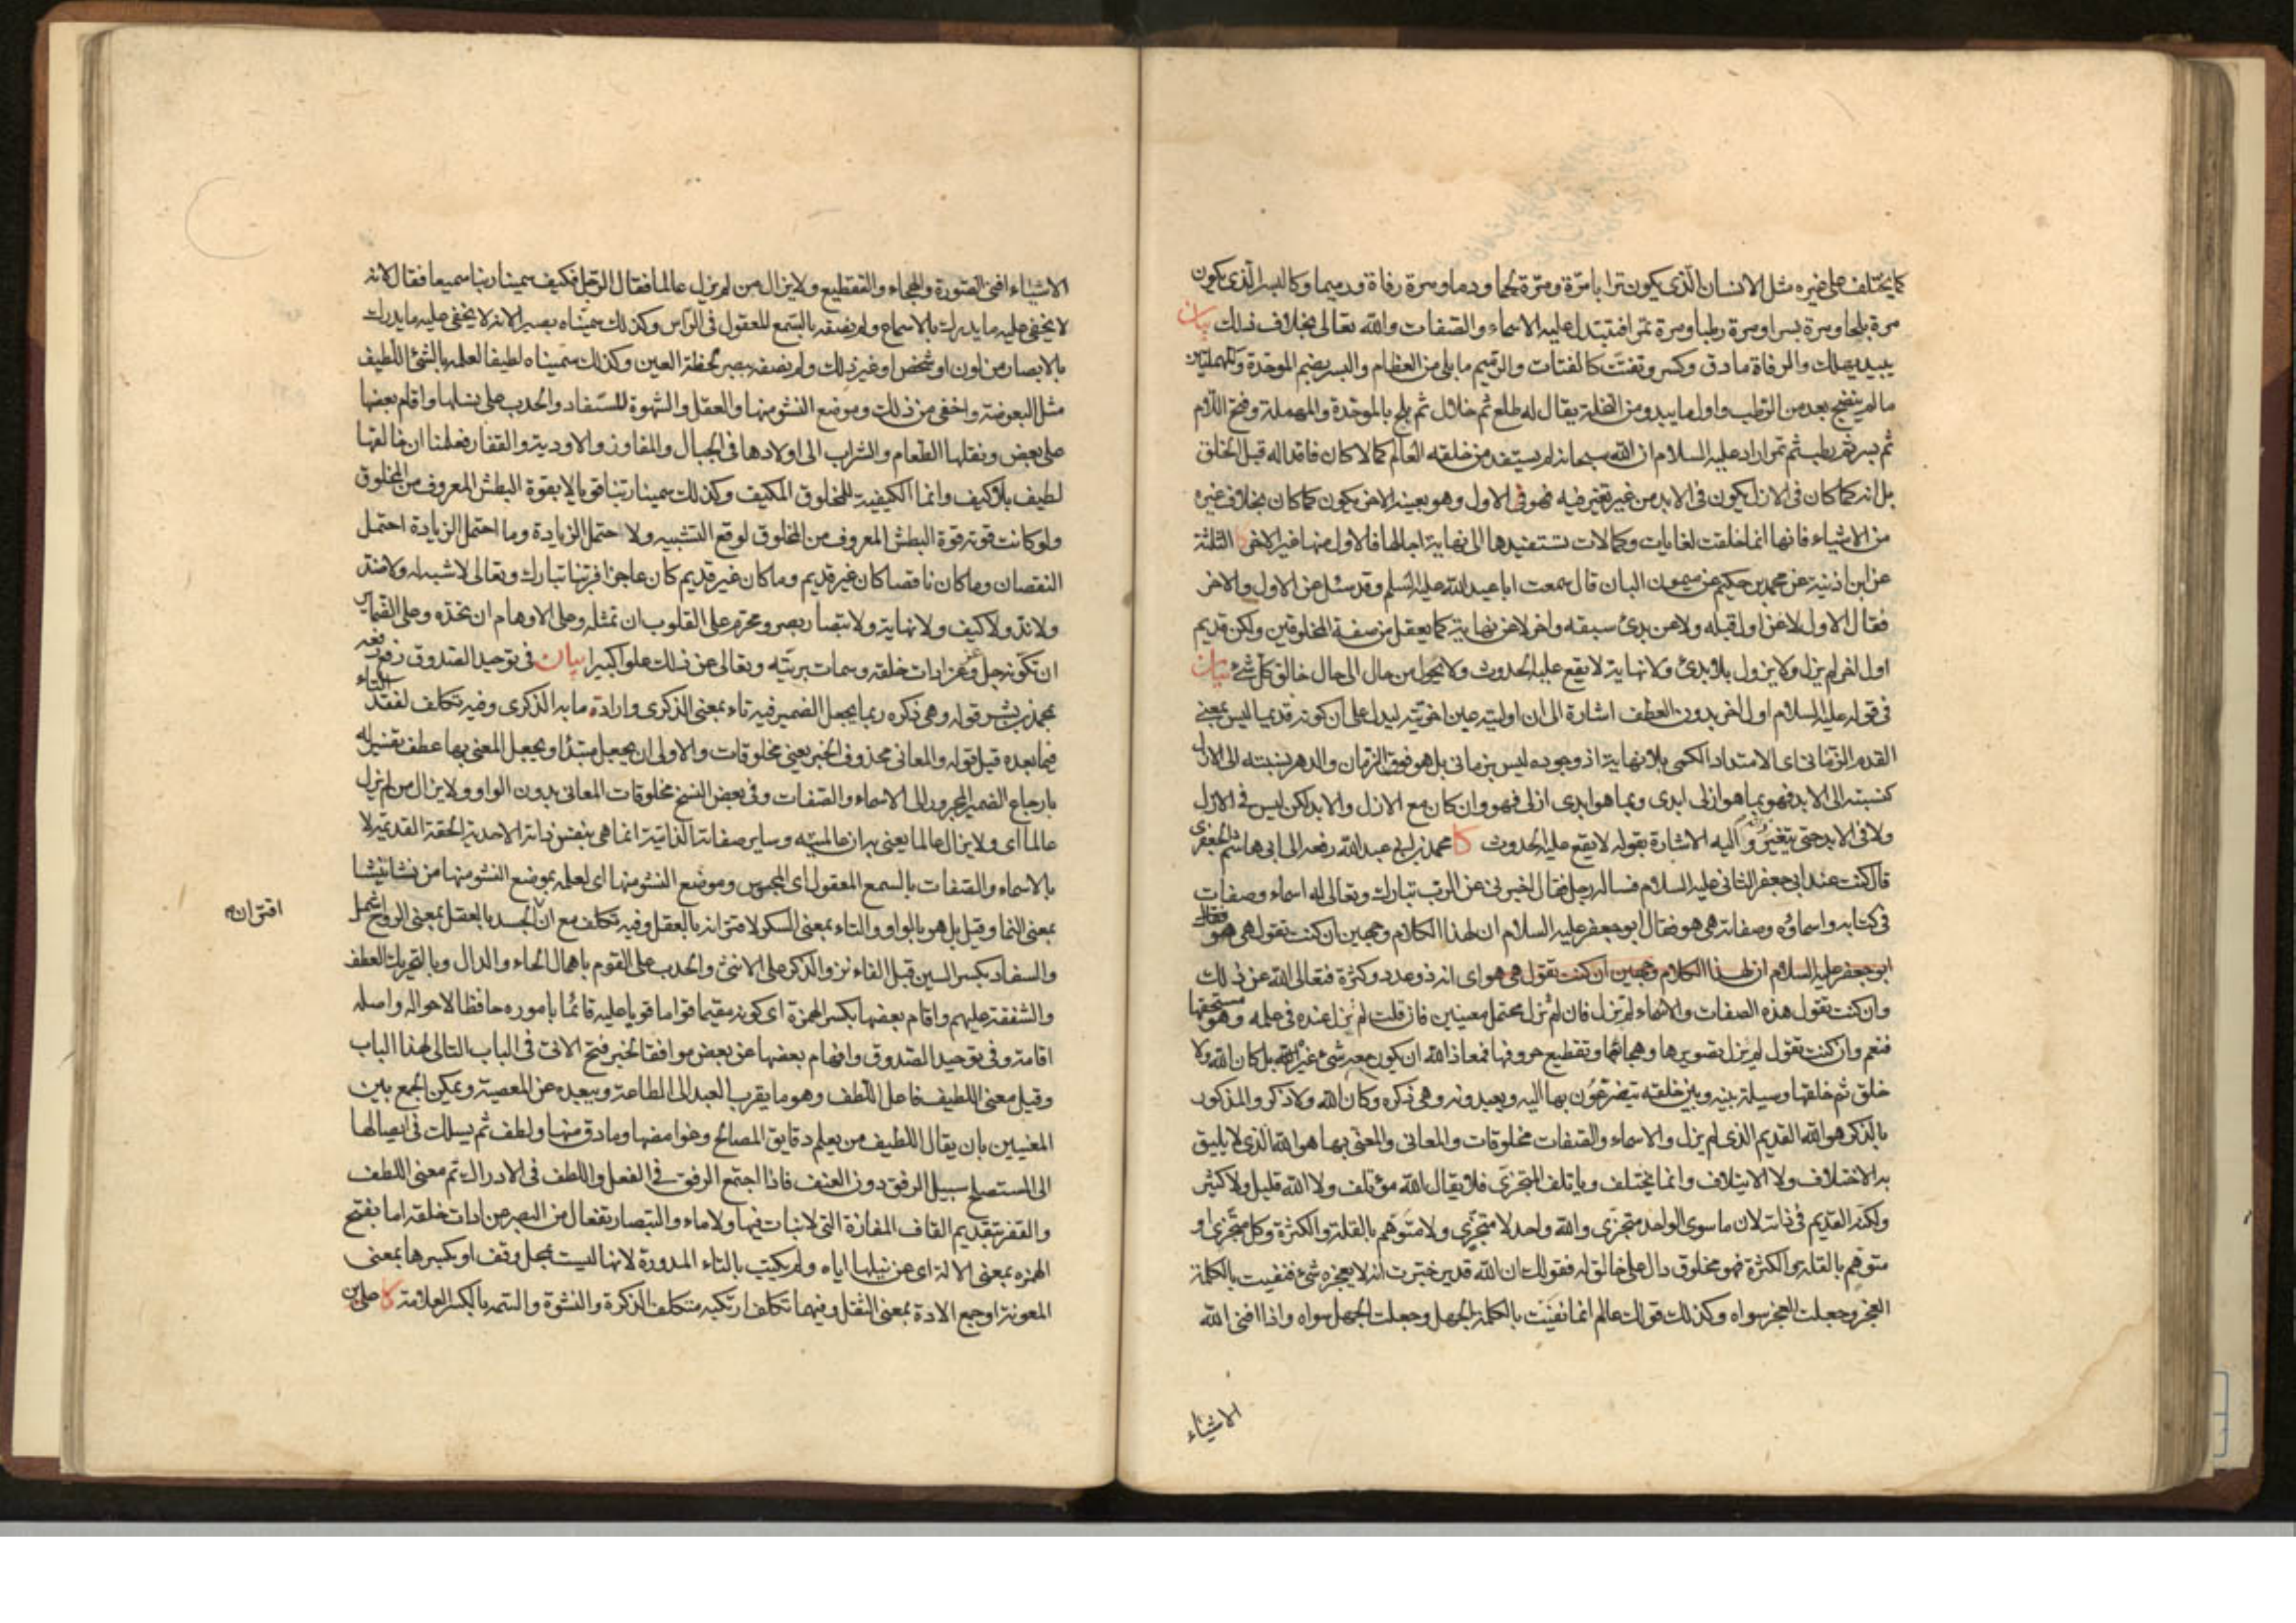 كما يختلف على غيره مثل الانسان الّذى يكون ترابا مرّة ومرّة لحما ودما ومرة رفاة ورميما وكالبسر الّذى يكون
مرة بلحا ومرة بسرا ومرة رطبا ومرة تمرا فتتبدل عليه الاسماء والصّفات والله تعالى بخلاف ذلك بيان
يبيد يهلك والرفاة مادق وكسر وتفتت كالفتات والرّميم ما بلى من العظام والبسر بضم الموحّدة والمهملتين
ما لم ينضج بعد من الرّطب واول ما يبدو من النخلة يقال له طلع ثم خلال ثم بلح بالموحّدة والمهملة وفتح اللّام
ثم بسر ثم رطب ثم تمر اراد عليه السلام ان الله سبحانه لم يستفد من خلقته العالم كمالا كان فاقدا له قبل الخلق
بل انه كما كان فى الازل يكون فى الابد من غير تغير فيه فهو فى الاول وهو بعينه الاخر يكون كما كان بخلاف غيره
من الاشياء فانها انما خلقت لغايات وكمالات تستفيدها الى نهاية اجالها فالاول منها غير الاخر كا الثلثة
عن ابن اذنية عن محمد بن حكيم عن ميمون البان قال سمعت ابا عبد الله عليه السلم وقد سئل عن الاول والاخر
فقال الاول لا عن اول قبله ولا عن بدئ سبقه واخر لا عن نهاية كما يعقل من صفة المخلوقين ولكن قديم
اول اخر لم يزل ولا يزول بلا بدئ ولا نهاية لا يقع عليه الحدوث ولا يحول من حال الى حال خالق كل شئ بيان
فى قوله عليه السلام اول اخر بدون العطف اشارة الى ان اوليته عين اخريّته ليدل على ان كونه قديما ليس بمعنى
القدم الزّمانى اى الامتداد الكمى بلا نهاية اذ وجوده ليس بزمانى بل هو فوق الزمان والدهر نسبته الى الازل
كنسبته الى الابد فهو بما هو ازلى ابدى وبما هو ابدى ازلى فهو وان كان مع الازل والابد لكن ليس فى الازل
ولا فى الابد حتى يتغير واليه الاشارة بقوله لا يقع عليه الحدوث كا محمد بن ابى عبد الله رفعه الى ابى هاشم الجعفرى
قال كنت عند ابى جعفر الثانى عليه السلام فساله رجل فقال اخبرنى عن الرب تبارك وتعالى له اسماء وصفات
فى كتابه واسماؤه وصفاته هى هو فقال ابو جعفر عليه السلام ان لهذا الكلام وجهين ان كنت تقول هى هو فقال
ابو جعفر عليه السلام ان لهذا الكلام وجهين ان كنت تقول هى هو اى انه ذو عدد وكثرة فتعالى الله عن ذلك
وان كنت تقول هذه الصفات والاسماء لم تزل فان لم تزل محتمل معنيين فان قلت لم تزل عنده فى علمه وهو مستحقها
فنعم وان كنت تقول لم يزل تصويرها وهجائها وتقطيع حروفها فمعاذ الله ان يكون معه شئ غيره بل كان الله ولا
خلق ثم خلقها وسيلة بينه وبين خلقه يتضرعون بها اليه ويعبدونه وهى ذكره وكان الله ولا ذكر والمذكور
بالذكر هو الله القديم الذى لم يزل والاسماء والصّفات مخلوقات والمعانى والمعنى بها هو الله الذى لا يليق
به الاختلاف ولا الايتلاف وانما يختلف وياتلف المتجزى فلا يقال الله مؤتلف ولا الله قليل ولا كثير
ولكنه القديم فى ذاته لان ما سوى الواحد متجزى والله واحد لا متجزى ولا متوهم بالقلة والكثرة وكل متجزى او
متوهم بالقلة والكثرة فهو مخلوق دال على خالق له فقولك ان الله قدير خبرت انه لا يعجزه شئ فنفيت بالكلمة
العجز وجعلت العجز سواه وكذلك قولك عالم انما نفيت بالكلمة الجهل وجعلت الجهل سواه واذا افنى الله
الاشياء
الاشياء افنى الصّورة والهجاء والتقطيع ولا يزال من لم يزل عالما فقال الرّجل فكيف سمينا ربنا سميعا فقال لانه
لا يخفى عليه ما يدرك بالاسماع ولم نصفه بالسّمع المعقول فى الرّاس وكذلك سمّيناه بصيرا لانه لا يخفى عليه ما يدرك
بالابصار من لون او شخص او غير ذلك ولم نصفه ببصر لحظة العين وكذلك سمّيناه لطيفا لعلمه بالشئ اللّطيف
مثل البعوضة واخفى من ذلك وموضع النشو منها والعقل والشهوة للسّفاد والحدب على نسلها واقام بعضها
على بعض ونقلها الطّعام والشراب الى اولادها فى الجبال والمفاوز والاودية والقفار فعلمنا ان خالقها
لطيف بلا كيف وانما الكيفية للمخلوق المكيف وكذلك سمينا ربّنا قويا لا بقوة البطش المعروف من المخلوق
ولو كانت قوته قوة البطش المعروف من المخلوق لوقع التشبيه ولا احتمل الزيادة وما احتمل الزيادة احتمل
النقصان وما كان ناقصا كان غير قديم وما كان غير قديم كان عاجزا فربّنا تبارك وتعالى لا شبه له ولا ضد
ولا ندّ ولا كيف ولا نهاية ولا تبصار بصر ومحرّم على القلوب ان تمثله وعلى الاوهام ان تحدّه وعلى الضّماير
ان تكوّنه جل وعز عن ادات خلقه وسمات بريّته وتعالى عن ذلك علوا كبيرا بيان فى توحيد الصّدوق رفعه
محمد بن بشر قوله وهى ذكره ربما يجعل الضمير فيه تاء بمعنى الذكرى وارادة ما به الذكرى وفيه تكلف لفقد التاء
فيما بعده قيل قوله والمعانى محذوف الخبر يعنى مخلوقات والاولى ان يجعل مبتدأ ويجعل المعنى بها عطف تفسير له
بارجاع الضمير المجرور الى الاسماء والصّفات وفى بعض النسخ مخلوقات المعانى بدون الواو ولا يزال من لم يزل
عالما اى ولا يزال عالما يعنى به ان عالميّته وساير صفاته الذاتية انما هى بنفس ذاته الاحدية الحقة القديمة لا
بالاسماء والصّفات بالسمع المعقول اى المحسوس وموضع النشو منها اى لعلمه بموضع النشو منها من نشا ينشا
بمعنى النما وقيل بل هو بالواو والتاء بمعنى السكر لاقترانه بالعقل وفيه تكلف مع ان الجسد بالعقل بمعنى الروح اشمل
اقتران م
والسفاد بكسر السين قبل الفاء نزو الذكر على الانثى والحدب على القوم باهمال الحاء والدال وبالتحريك العطف
والشفقة عليهم واقام بعضها بكسر الهمزة اى كونه مقيما قواما قويا عليه قائما باموره حافظا لاحواله واصله
اقامة وفى توحيد الصّدوق وافهام بعضها عن بعض موافقا لخبر فتح الاتى فى الباب التالى لهذا الباب
وقيل معنى اللطيف فاعل اللّطف وهو ما يقرب العبد الى الطاعة ويبعده عن المعصية ويمكن الجمع بين
المعنيين بان يقال اللطيف من يعلم دقايق المصالح وغوامضها وما دق منها ولطف ثم يسلك فى ايصالها
الى المستصلح سبيل الرفق دون العنف فاذا اجتمع الرفق فى الفعل واللطف فى الادراك تم معنى اللطف
والقفر بتقديم القاف المفازة التى لا نبات فيها ولا ماء والتبصار تفعال من البصر عن ادات خلقه اما بفتح
الهمزه بمعنى الالة اى عن نيلها اياه ولم يكتب بالتاء المدورة لانها ليست بمحل وقف او بكسرها بمعنى
المعونة او جمع الادة بمعنى الثقل وفيهما تكلف ارتكبه متكلف الذكرة والنشوة والسّمه بالكسر العلامة كا على بن